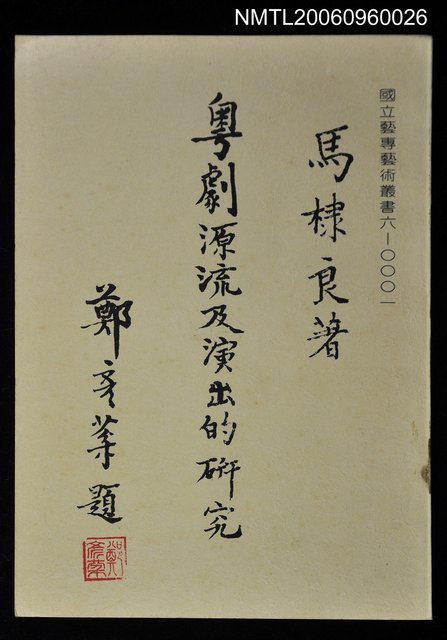 NMTL20060960026
國立藝專藝術叢書六－〇〇〇一
馬棣良著
粵劇源流及演出的研究
鄭彥棻題
鄭彥棻